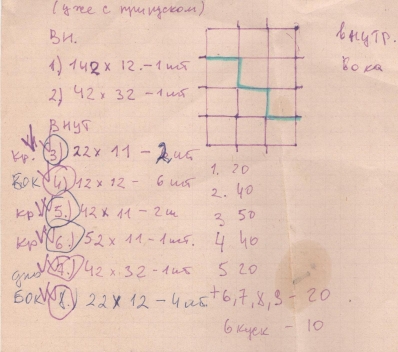 (уже с припуском)
ВН.
1) 142 х 12 - 1 шт
2) 42 х 32 - 1 шт
ВНУТ
Кр. 3) 22 х 11 - 2 шт
БОК 4) 12 х 12 - 6 шт
кр 5.) 42 х 11 - 2 ш
Кр 6.) 52 х 11 - 1 шт.
дно 7.) 42 х 32 - 1 шт
Бок 8.) 22 х 12 - 4 шт
внутр.
Бока
1. 20
2. 40
3. 50
4 40
5 20
+ 6, 7, 8, 9 - 20.
6 куск - 10